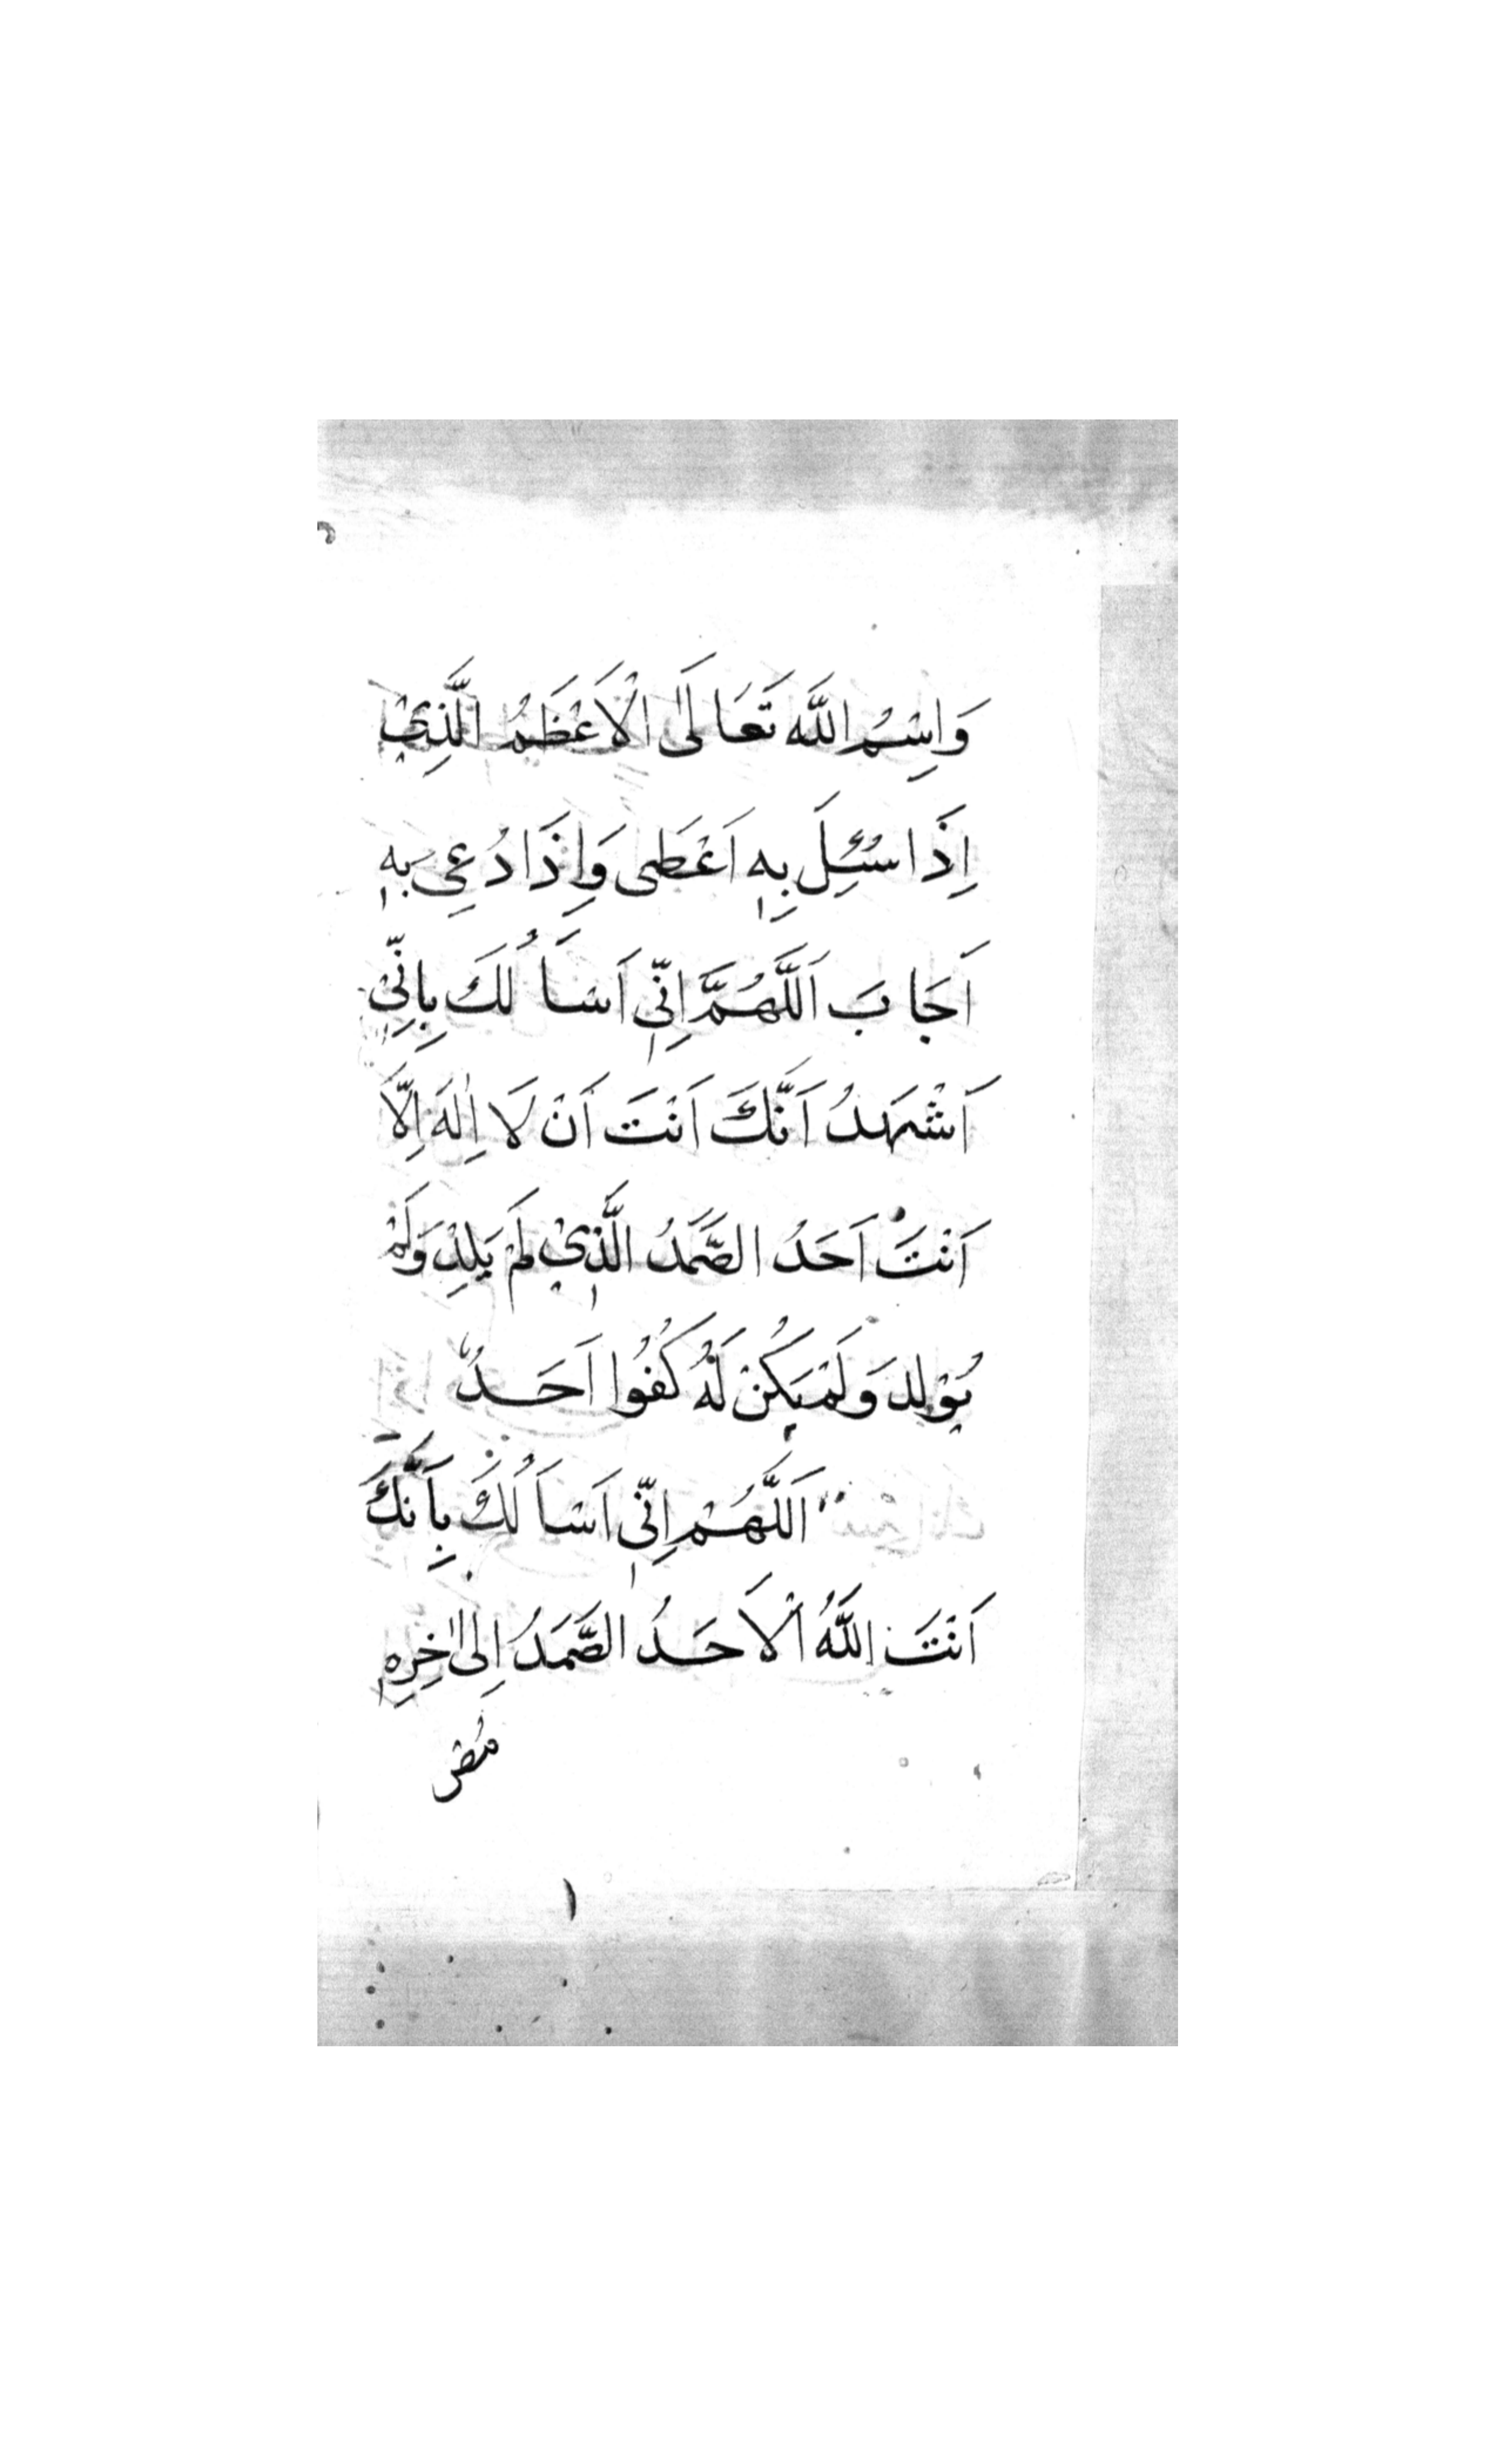 وَاِسْمُ اللَّه تَعَالَىٰ الْاَعْظَمُ الَّذِيْ
اِذَا سُئِلَ بِهٖ اَعْطٰى وَاِذَا دُعِيَ بِهٖ
اَجَابَ اَللَّهُمَّ اِنّٖي اَسْاَلُكَ بِاِنِّيْ
اَشْهَدُ اَنَّكَ اَنْتَ اَنْ لَا اِلٰهَ اِلَّا
اَنْتَ اَحَدُ الصَّمَدُ الَّذٖيْ لَمْ يَلِدْ وَلَمْ
يُوْلِد وَلَمْ يَكُنْ لَهُ كُفُوا اَحَدٌ
اَللَّهُمْ اِنّٖي اَسْاَلُكَ بِاَنَّكَ
اَنْتَ اللَّهُ الْاَحَدُ الصَّمَدُ اِلٰى اٰخِرِهٖ
١